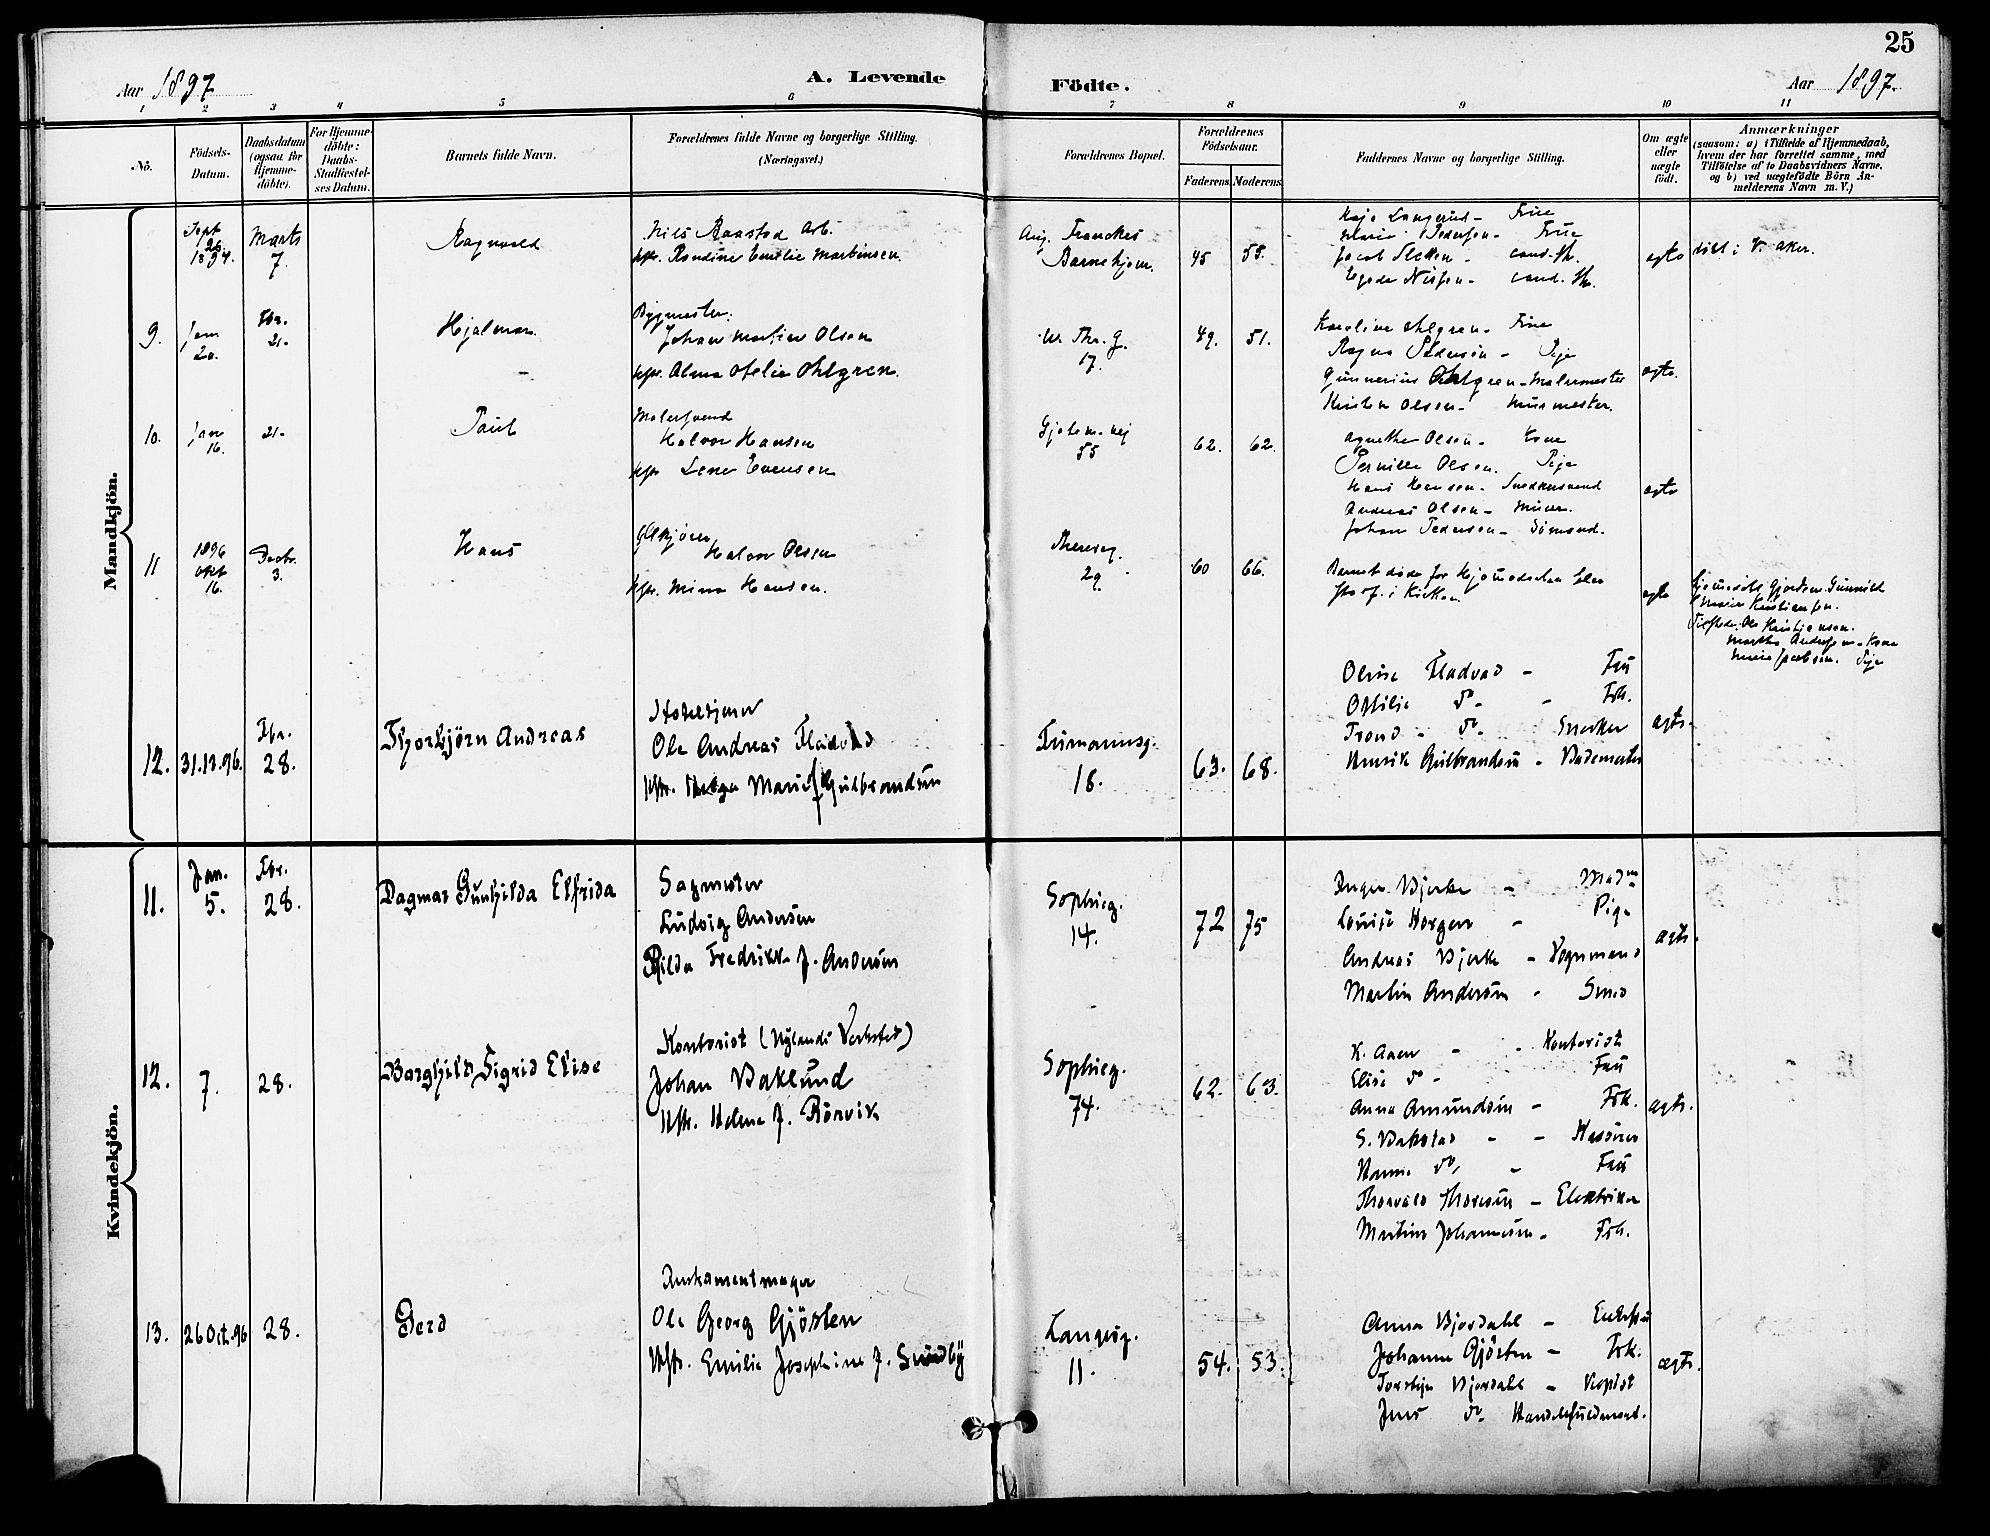 25
Aar 1897
A. Levende
Födte.
Aar 1897.
1 2 3 4 5 6 7 8 9 10 11
No.
Födsels-Datum.
Daabsdatum (ogsaa for Hjemme-döbte).
For Hjemme-döbte: Daabs-Stadfæstel-ses Datum.
Barnets fulde Navn.
Forældrenes fulde Navne og borgerlige Stilling. (Næringsvei.)
Forældrenes Bopæl.
Forældrenes Födselsaar.
Faderens Moderens
Faddernes Navne og borgerlige Stilling.
Om ægte eller uægte födt.
Anmærkninger
(saasom: a) i Tilfælde af Hjemmedaab, hvem der har forrettet samme, med Tilföielse af to Daabsvidners Navne, og b) ved uægtefödte Börn An-melderens Navn m. V.)
Mandkjön.
Sept 26 1894.
Marts 7.
Ragnvald
Nils Baastad Arb.
Hstr. Randine Emilie Martinsen.
Aug. Franckes
Barnehjem.
45 55.
Kaja Langerud - Frue
Marie Pedersen - Frue
Jacob Sletten - cand. th.
Egede Nissen - cand. th.
ægte
döbt i V. Aker.
9.
Jan 20.
Fbr. 21.
Hjalmar
Bygmester
Johan Martin Olsen
Hstr. Alma Ofelie Ohlgren.
W. Thr. G.
17.
49. 51.
Karoline Ohlgren - Frue
Ragna Pedersen - Pige
Gunnerius Ohlgren - Malermester
Kristen Olsen - Murmester.
ægte.
10.
Jan 16.
21.
Paul
Malersvend
Halvor Hansen
Hstr Lene Evensen
Gjetem. vej
55
62. 62.
Agnethe Olsen - Kone
Pernille Olsen. Pige
Hans Hansen - Snedkersvend
Andreas Olsen - Murer.
Johan Pedersen - Sömand.
ægte
11
1896 Okt 16.
Decbr. 3.
Hans
Halvor Olsen
Hstr. Mina Hansen.
Thereseg.
29.
60 66.
Barnet döde för Hjemmedaaben blev
stadf. i Kirken.
ægte
Hjemmedöbt Gjordem. Gunnild
Marie Kristiansen.
Tilstede: Ole Kristiansen.
Martha Andersen - Kone
Marie Jacobsen. Pige
12.
31.12.96.
Fbr. 28.
Thorbjörn Andreas
Hoteltjener
Ole Andreas Fladvad
Hstr. Helga Marie f. Gulbrandsen
Frimannsg.
18.
63. 68.
Oluse Fladvad - Fru
Ottilie do - Frk.
Trond - do - Snedker
Henrik Gulbrandsen - Bademester
ægte.
Kvindekjön.
11.
Jan. 5.
Fbr. 28.
Dagmar Gunhilda Elfrida
Sagmester
Ludvig Andersen
Hilda Fredrikke f. Andersen
Sophieg.
14.
72 75
Inger Bjerke - Madm
Louise Horgen - Pige
Andreas Bjerke - Vognmand
Martin Andersen - Smed
ægte.
12.
7.
28.
Borghild Sigrid Elise
Kontorist (Nylands Verksted)
Johan Baklund
Hstr. Helene f. Rörvik
Sophieg.
74.
62. 63.
K. Aaen - - Kontorist
Elise do - Fru
Anna Amundsen - Frk.
S. Bakstad - - Kasserer
Hanna do, - Fru
Thorvald Thoresen - Elektriker
Martine Johannesen - Frk.
ægte.
13.
26 Oct. 96
28.
Gerd
Instrumentmager
Ole Georg Gjösten
Hstr. Emilie Josephine f. Sundby
Langesg.
11.
54. 53.
Anna Bjordahl - Enkefru
Johanne Gjösten - Frk.
Torstein Bjordahl - Kopist
Jens do - Handelsfuldmægt.
ægte.